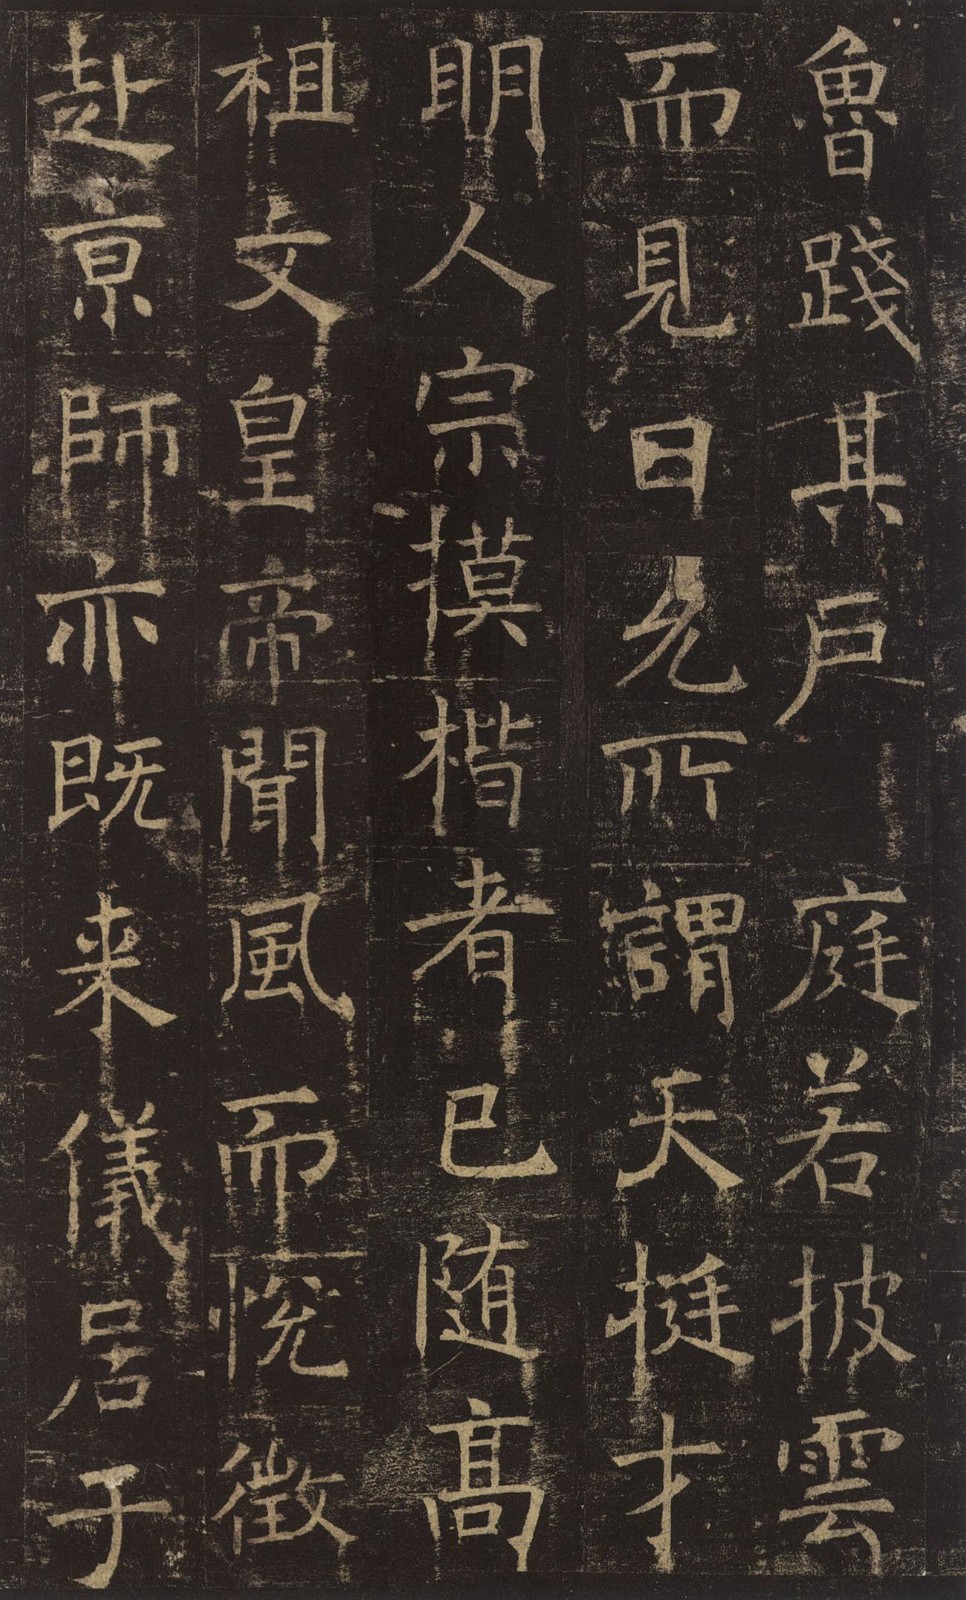 魯踐其戶庭若披雲
而見日允所謂天挺才
明人宗摸楷者已随髙
祖文皇帝聞風而悅徵
赴京師亦既来儀居于